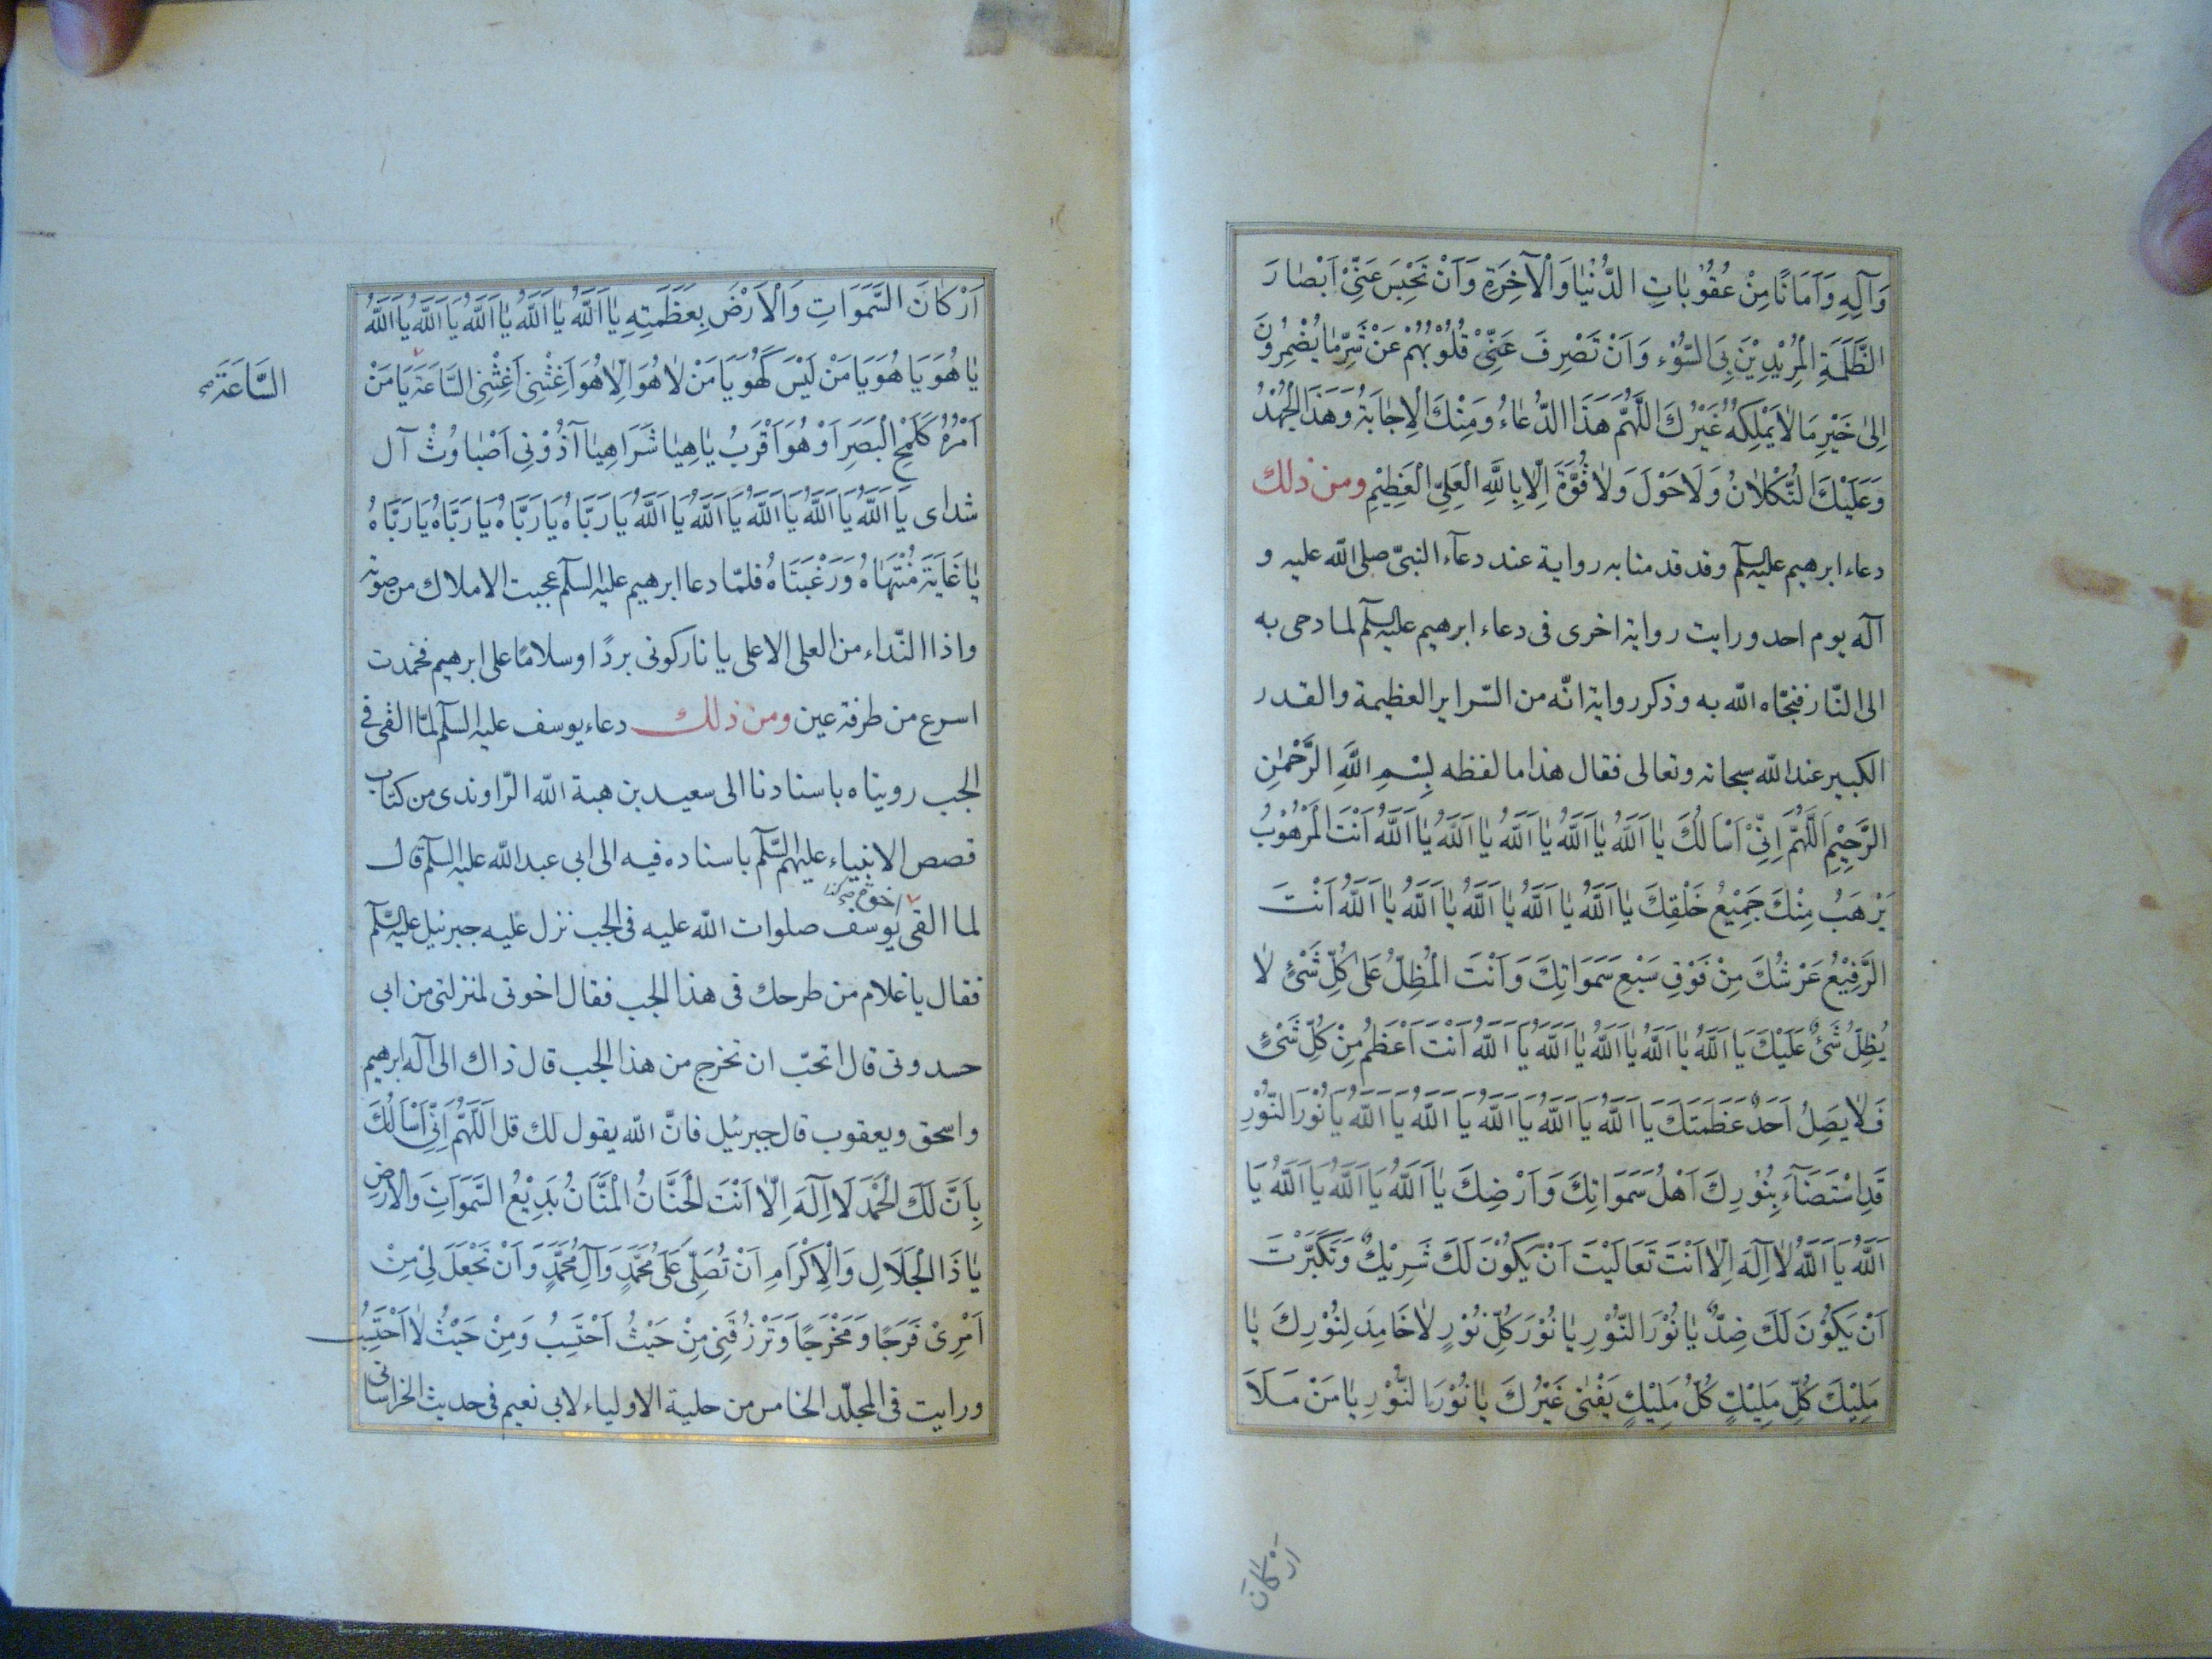 وَآلِهِ وَاَمَانًا مِنْ عُقُوْبَاتِ الدُّنْيَا وَالْآخِرَةِ وَاَنْ تَحْبِسَ عَنِّيْ اَبْصَارَ
الظَّلَمَةِ الْمُرِيْدِيْنَ بِيَ السُّوْءَ وَاَنْ تَصْرِفَ عَنِّيْ قُلُوْبَهُمْ عَنْ شَرِّ مَا يُضْمِرُونَ
اِلىٰ خَيْرِ مَا لَا يَمْلِكُهُ غَيْرُكَ اللَّهُمَّ هَذَا الدُّعَاءُ وَمِنْكَ الْاِجَابَةُ وَهَذَا الْجُهْدُ
وَعَلَيْكَ التُّكْلَانُ وَلَا حَوْلَ وَلَا قُوَّةَ اِلَّا بِاللَّهِ الْعَلِيِّ الْعَظِيْمِ ومن ذلك
دعاء ابرهيم عليه السلم وقد قدمنا به رواية عند دعآء النبىّ صلى الله عليه و
آله يوم احد ورايت رواية اخرى فى دعاء ابرهيم عليه السلم لما دحى به
الى النّار فنجّاه الله به وذكر رواية انّه من السّراير العظيمة والقدر
الكبير عند الله سبحانه وتعالى فقال هذا ما لفظه بِسْمِ اللَّهِ الرَّحْمٰنِ
الرَّحِيْمِ اَللَّهُمَّ اِنِّيْ اَسْاَلُكَ يَا اَللَّهُ يَا اَللَّهُ يَا اَللَّهُ يَا اَللَّهُ يَا اَللَّهُ اَنْتَ الْمَرْهُوْبُ
يَرْهَبُ مِنْكَ جَمِيْعُ خَلْقِكَ يَا اَللَّهُ يَا اَللَّهُ يَا اَللَّهُ يَا اَللَّهُ يَا اَللَّهُ اَنْتَ
الرَّفِيْعُ عَرْشُكَ مِنْ فَوْقِ سَبْعِ سَمَوَاتِكَ وَاَنْتَ الْمُظِلُّ عَلىٰ كُلِّ شَيْءٍ لَا
يُظِلُّ شَيْءٌ عَلَيْكَ يَا اَللَّهُ يَا اَللَّهُ يَا اَللَّهُ يَا اَللَّهُ يَا اَللَّهُ اَنْتَ اَعْظَمُ مِنْ كُلِّ شَيْءٍ
فَلَا يَصِلُ اَحَدٌ عَظَمَتَكَ يَا اَللَّهُ يَا اَللَّهُ يَا اَللَّهُ يَا اَللَّهُ يَا اَللَّهُ يَا نُوْرَ النُّوْرِ
قَدِ اسْتَضَآءَ بِنُوْرِكَ اَهْلُ سَمَوَاتِكَ وَاَرْضِكَ يَا اَللَّهُ يَا اَللَّهُ يَا اَللَّهُ يَا
اَللَّهُ يَا اَللَّهُ لَا اِلٰهَ اِلَّا اَنْتَ تَعَالَيْتَ اَنْ يَكُوْنَ لَكَ شَرِيْكٌ وَتَكَبَّرْتَ
اَنْ يَكُوْنَ لَكَ ضِدٌّ يَا نُوْرَ النُّوْرِ يَا نُوْرَ كُلِّ نُوْرٍ لَا خَامِدَ لِنُوْرِكَ يَا
مَلِيْكَ كُلِّ مَلِيْكٍ كُلُّ مَلِيْكٍ يَفْنىٰ غَيْرُكَ يَا نُوْرَ النُّوْرِ يَا مَنْ مَلَاَ
اَرْكَانَ
اَرْكَانَ السَّمَوَاتِ وَالْاَرْضَ بِعَظَمَتِهِ يَا اَللَّهُ يَا اَللَّهُ يَا اَللَّهُ يَا اَللَّهُ يَا اَللَّهُ
يَا هُوَ يَا هُوَ يَا مَنْ لَيْسَ كَهُوَ يَا مَنْ لَا هُوَ اِلَّا هُوَ اَغِثْنِى اَغِثْنِى السَّاعَةَ يَا مَنْ
السَّاعَةَ
اَمْرُهُ كَلَمْحِ الْبَصَرِ اَوْ هُوَ اَقْرَبُ يَا هِيَا شَرَاهِيَا آذُوْنِى اَصْبَاوُثْ آل
شداى يَا اَللَّهُ يَا اَللَّهُ يَا اَللَّهُ يَا اَللَّهُ يَا اَللَّهُ يَا رَبَّاهُ يَا رَبَّاهُ يَا رَبَّاهُ يَا رَبَّاهُ
يَا غَايَةَ مُنْتَهَاهُ وَرَغْبَتَاهُ فلمّا دعا ابرهيم عليه السلم عجبت الاملاك من صوته
واذا النّداء من العلى الاعلى يا نار كونى بردًا وسلامًا على ابرهيم فخمدت
اسرع من طرفة عين ومن ذلك دعاء يوسف عليه السلم لمّا القى فى
الجب رويناه باسنادنا الى سعيد بن هبة الله الرّاوندى من كتاب
قصص الانبياء عليهم السّلم باسناده فيه الى ابى عبد الله عليه السلم قال
لما القى يوسف صلوات الله عليه فى الجب نزل عليه جبرئيل عليه السّلم
فقال يا غلام من طرحك فى هذا الجب فقال اخوتى لمنزلتى من ابى
حسدونى قال اتحبّ ان تخرج من هذا الجب قال ذاك الى آله ابرهيم
واسحق ويعقوب قال جبرئيل فانّ الله يقول لك قل اَللَّهُمَّ اِنِّى اَسْاَلُكَ
بِاَنَّ لَكَ الْحَمْدَ لَا اِلٰهَ اِلَّا اَنْتَ الْحَنَّانُ الْمَنَّانُ بَدِيْعُ السَّمَوَاتِ وَالْاَرْضِ
يَا ذَا الْجَلَالِ وَالْاِكْرَامِ اَنْ تُصَلِّىَ عَلىٰ مُحَمَّدٍ وَآلِ مُحَمَّدٍ وَاَنْ تَجْعَلَ لِىْ مِنْ
اَمْرِىْ فَرَجًا وَمَخْرَجًا وَتَرْزُقَنِى مِنْ حَيْثُ اَحْتَسِبُ وَمِنْ حَيْثُ لَا اَحْتَسِبُ
ورايت فى المجلّد الخامس من حلية الاولياء لابى نعيم فى حديث الخراسانى